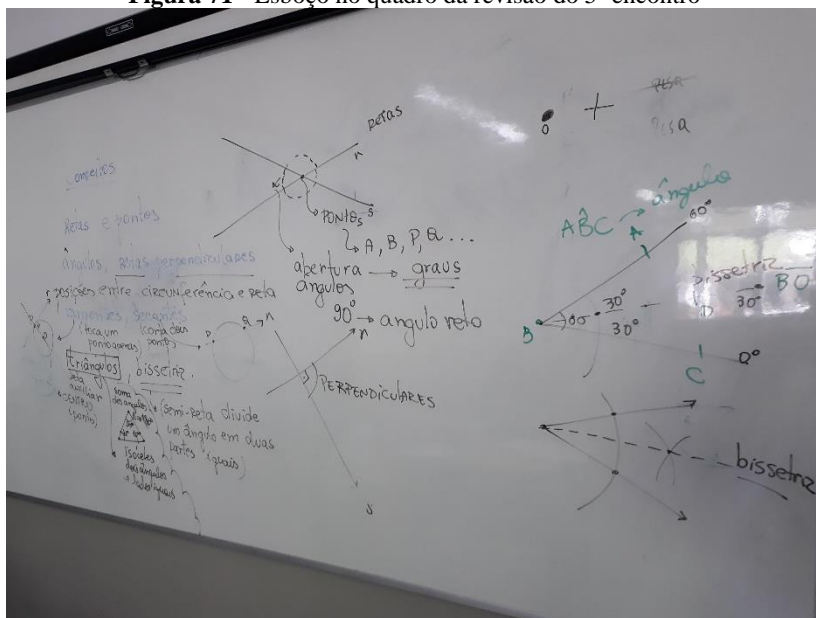 Figura 71 - Esboço no quadro da revisão do 3º encontro
Conceitos
Retas e pontos
ângulos, retas perpendiculares
posições entre circunferência e reta
tangentes, secantes
(toca um
ponto apenas)
(corta dois
pontos)
triângulos, bissetriz
reta
auxiliar
(ponto)
soma
dos angulos
isóceles
dois ângulos
e lados iguais
(semi-reta divide
um ângulo em duas
partes iguais)
retas
r
s
PONTOS
A, B, P, Q ...
abertura → graus
ângulos
90° → angulo reto
r
PERPENDICULARES
s
O
PISA
PISA
AB̂C → ângulo
A
60°
B
60
30°
30°
bissetriz
D
30°
BO
C
0°
bissetriz